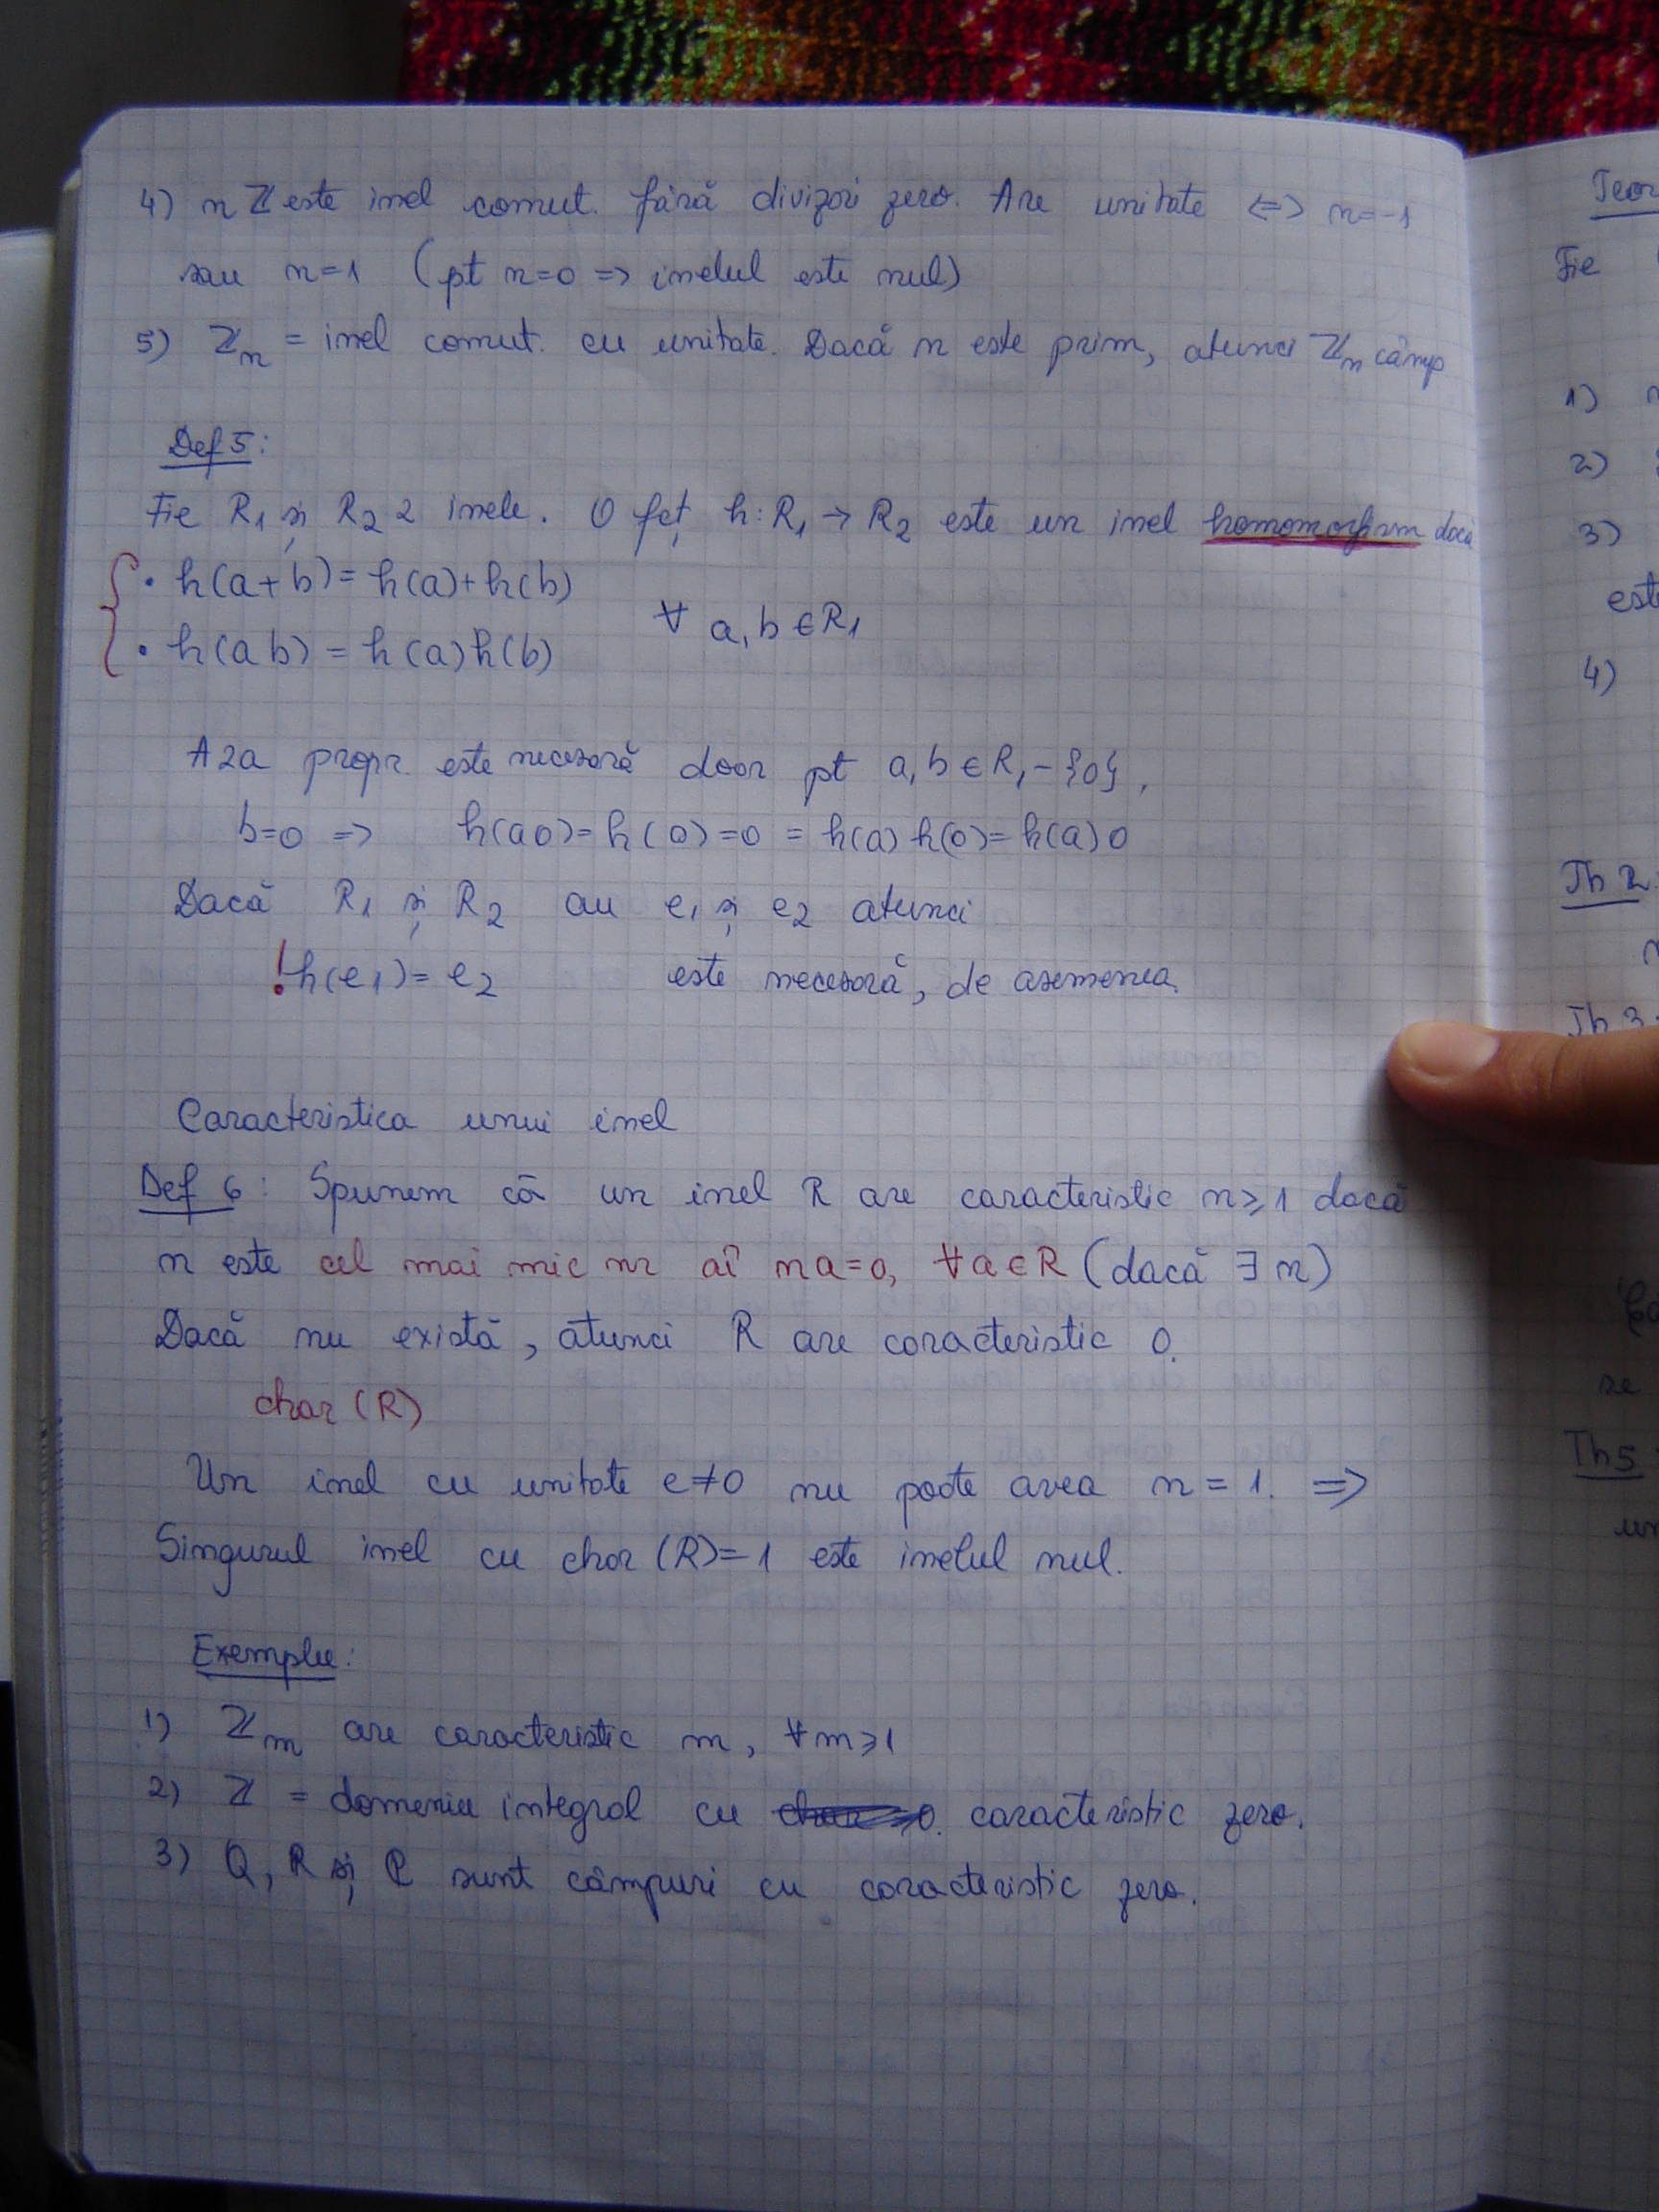 4) nℤ este inel comut. fără divizori zero. Are unitate <=> n=-1
sau n=1 (pt n=0 => inelul este nul)
5) ℤn = inel comut. cu unitate. Dacă n este prim, atunci ℤn câmp
Def 5:
Fie R1 și R2 2 inele. O fct h: R1 → R2 este un inel homomorfism dacă
• h(a+b) = h(a)+h(b)
∀ a,b ∈ R1
• h(ab) = h(a)h(b)
A 2a propr. este necesară doar pt a,b ∈ R1 - {0},
b=0 => h(a0) = h(0) = 0 = h(a) h(0) = h(a) 0
Dacă R1 și R2 au e1 și e2 atunci
! h(e1) = e2 este necesară, de asemenea.
Caracteristica unui inel
Def 6: Spunem că un inel R are caracteristic n ≥ 1 dacă
n este cel mai mic nr aî na=0, ∀a∈R (dacă ∃ n)
Dacă nu există, atunci R are caracteristic 0.
char (R)
Un inel cu unitate e≠0 nu poate avea n = 1. =>
Singurul inel cu char (R)=1 este inelul nul.
Exemple:
1) ℤm are caracteristic m, ∀m≥1
2) ℤ = domeniu integral cu caracteristic zero.
3) Q, R și C sunt câmpuri cu caracteristic zero.
Teor
Fie
1)
2)
3)
este
4)
Th 2:
Th 3:
se
Th 5:
un